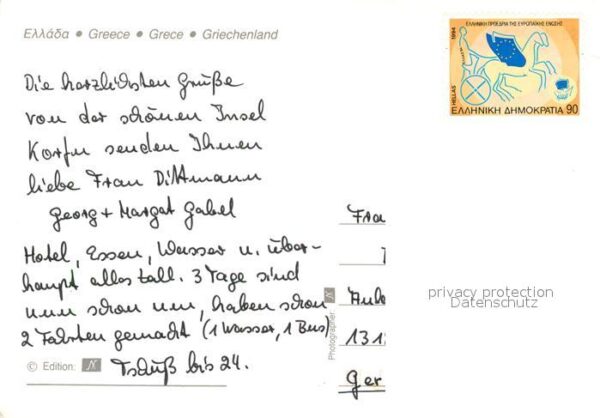 Ελλάδα • Greece • Grece • Griechenland
ΕΛΛΗΝΙΚΗ ΠΡΟΕΔΡΙΑ ΤΗΣ ΕΥΡΩΠΑΪΚΗΣ ΕΝΩΣΗΣ
1994
HELLAS
ΕΛΛΗΝΙΚΗ ΔΗΜΟΚΡΑΤΙΑ 90
Die herzlichsten Grüße
von der schönen Insel
Korfu senden Ihnen
liebe Frau Dittmann
Georg + Margat Gabel
Hotel, Essen, Wasser u. über-
haupt alles toll. 3 Tage sind
nun schon um, haben schon
2 Fahrten gemacht (1 Wasser, 1 Bus)
Tschüß bis 24.
© Edition: N
Photographer N
Frau
131
Ger
privacy protection
Datenschutz